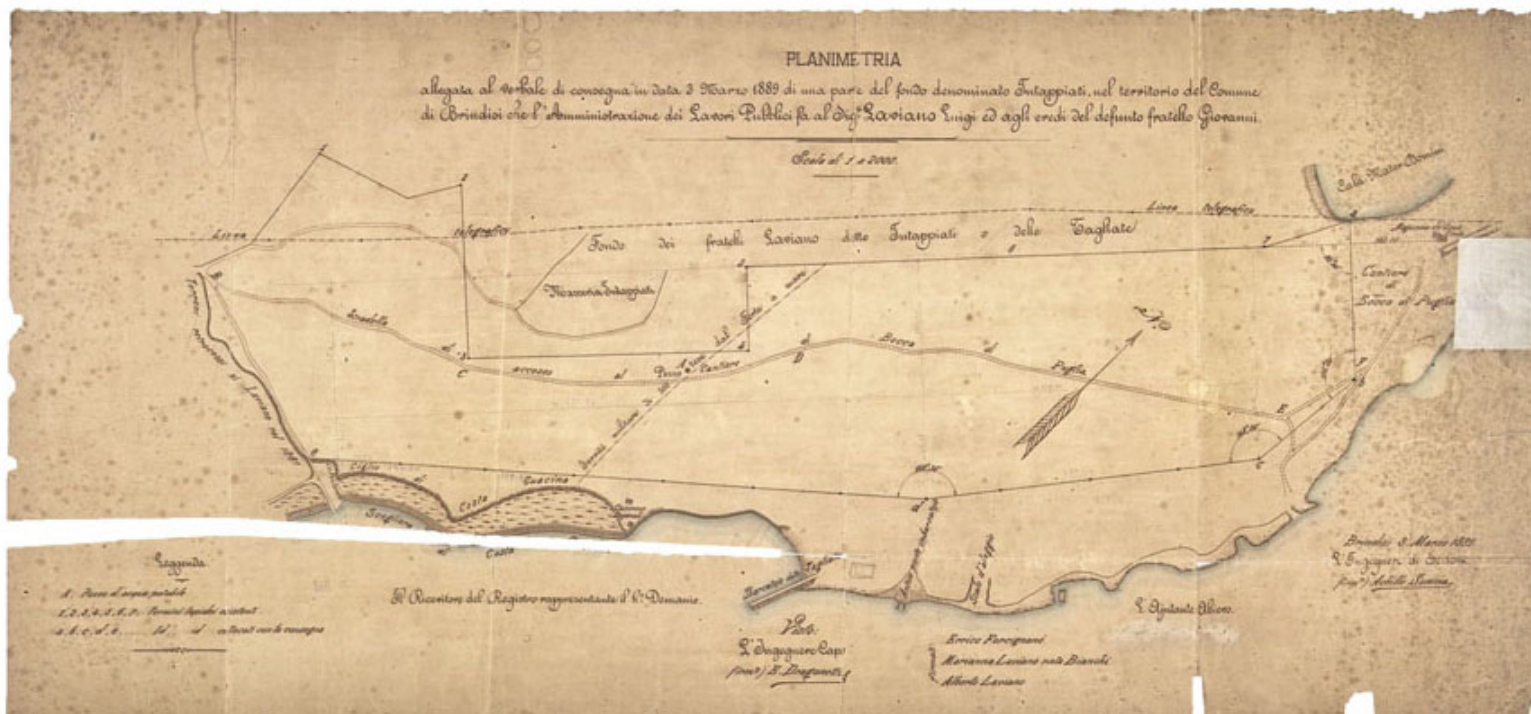 PLANIMETRIA
allegata al verbale di consegna in data 3 Marzo 1889 di una parte del fondo denominato Intappiati, nel territorio del Comune
di Brindisi che l'Amministrazione dei Lavori Pubblici fa al Sig. Laviano Luigi ed agli eredi del defunto fratello Giovanni.
Scala di 1 a 2000.
Cala Mater Domini
Linea telegrafica
Linea telegrafica
Fondo dei fratelli Laviano detto Intappiati o delle Tagliate
Masseria Intappiati
Cantiere
di
Bocca di Puglia
Stradella di accesso al Cantiere di Bocca di Puglia
Pozzo
Terreno retroceduto ai Laviano nel
Ciglio di Costa Guacina
Scogliera
Costa
Banchina delle Tagliate
Scalo d'alaggio
Leggenda
A. Pozzo d'acqua potabile
1, 2, 3, 4, 5, 6, 7. Termini lapidei esistenti
a. b. c. d. e. Id. id. collocati con la consegna
Il Ricevitore del Registro rappresentante il R. Demanio.
Visto:
L'Ingegnere Capo
Errico
Marianna Laviano nata Bianchi
Alberto Laviano
L'Ajutante Allievo.
Brindisi 3 Marzo 1889.
L'Ingegnere di Sezione
Achille